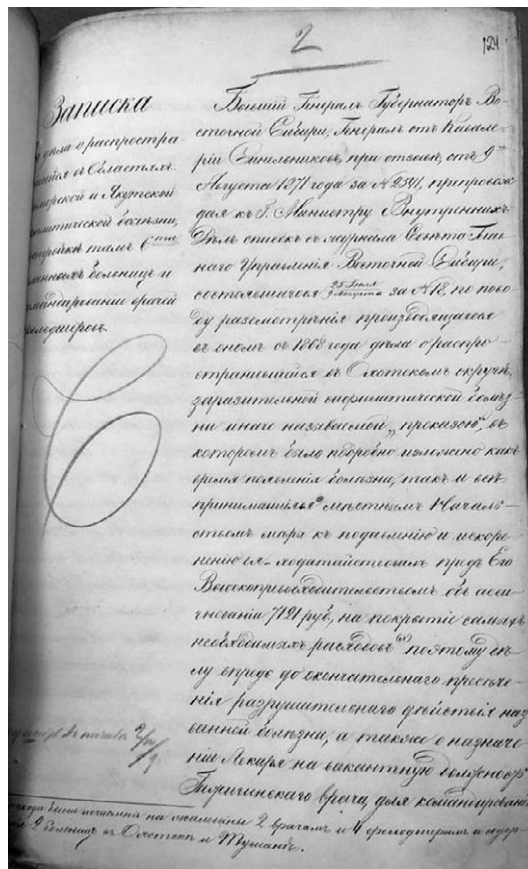 2
124
Записка
дѣла о распростра
въ Областяхъ
Приморской и Якутской
сифилитической болѣзни,
постройкѣ тамъ 6ти
больницъ и
командированіи врачей
фельдшеровъ.
Бывшій Генералъ Губернаторъ Во-
сточной Сибири, Генералъ отъ Кавале-
ріи Синельниковъ, при отзывѣ, отъ 9го
Августа 1871 года за № 2541, препровож-
дая къ Г. Министру Внутреннихъ
Дѣлъ списокъ съ журнала Совѣта Глав-
наго Управленія Восточной Сибири,
состоявшагося 25 Іюля
9 Августа за № 18, по пово-
ду разсмотрѣнія производящагося
въ ономъ съ 1868 года дѣла о распро-
странившейся въ Охотскомъ округѣ,
заразительной сифилитической болѣз-
ни иначе называемой „проказою“, въ
которомъ было подробно изложено какъ
время появленія болѣзни, такъ и всѣ
принимавшіяся мѣстнымъ Началь-
ствомъ мѣры къ подавленію и искоре-
ненію ея, ходатайствовалъ предъ Его
Высокопревосходительствомъ объ асси-
гнованіи 7121 руб, на покрытіе самыхъ
необходимыхъ расходовъ поэтому дѣ-
лу впредь до окончательнаго пресѣче-
нія разрушительнаго дѣйствія наз
ванной болѣзни, а также о назначе-
ніи Лекаря на вакантную должность
Гижигинскаго врача, для командированія
расходы были исчислены на жалованье 2 врачамъ и 4 фельдшерамъ и содер-
2 больницъ въ Охотскѣ и Тумапѣ.